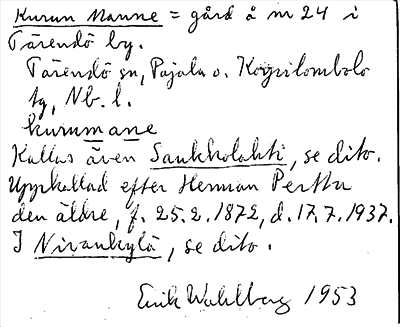 Kurun Manne = gård å nr 24 i
Tärendö by.
Tärendö sn, Pajala o. Korpilombolo
tg, Nb. l.
kurummane
Kallas även Saukkolahti, se dito.
Uppkallad efter Herman Perttu
den äldre, f. 25.2.1872, d. 17.7.1937.
I Nivankylä, se dito.
Erik Wahlberg 1953